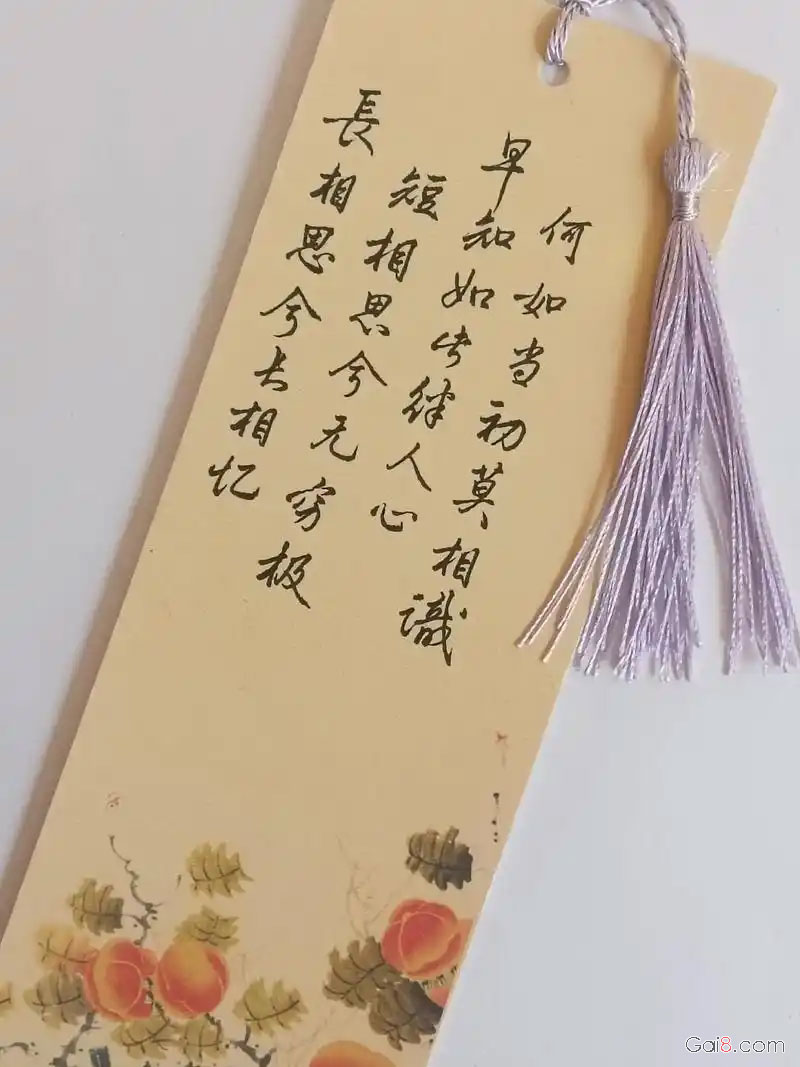 長相思兮长相忆
短相思兮无穷极
早知如此绊人心
何如当初莫相識
Gai8.com